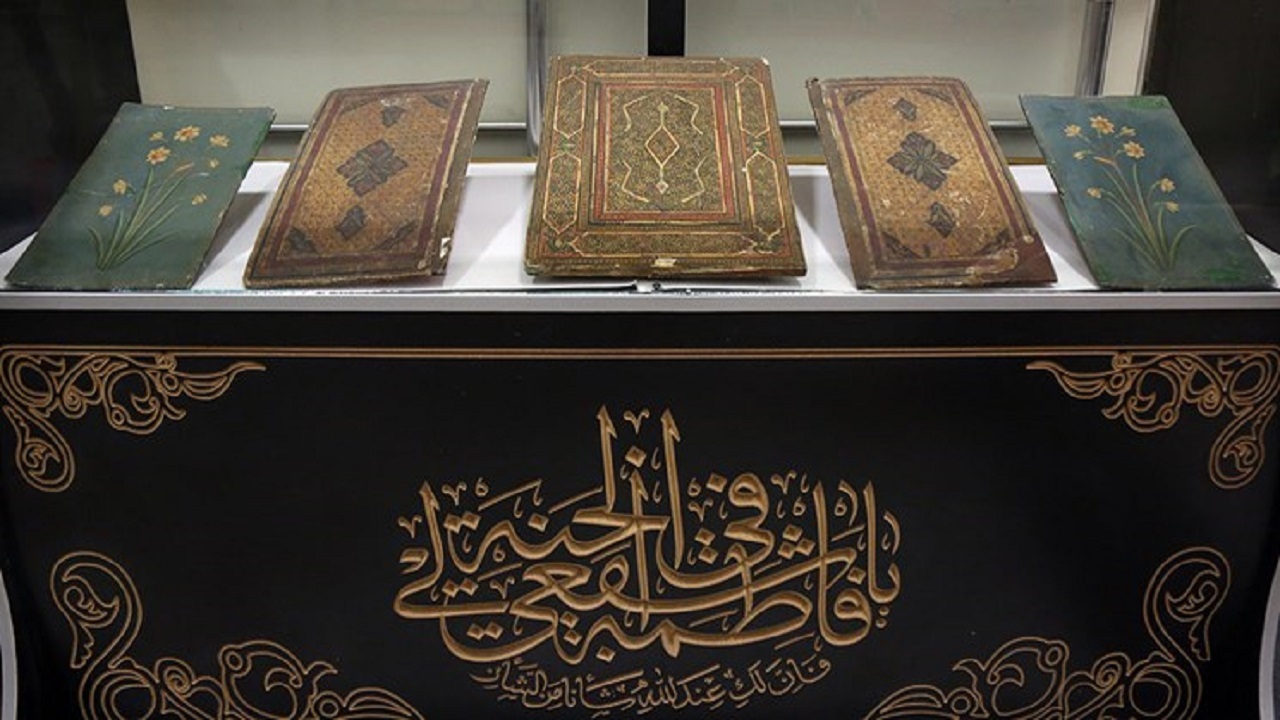 یا فاطمة اشفعی لی فی الجنة
فان لک عندالله شأنا من الشأن